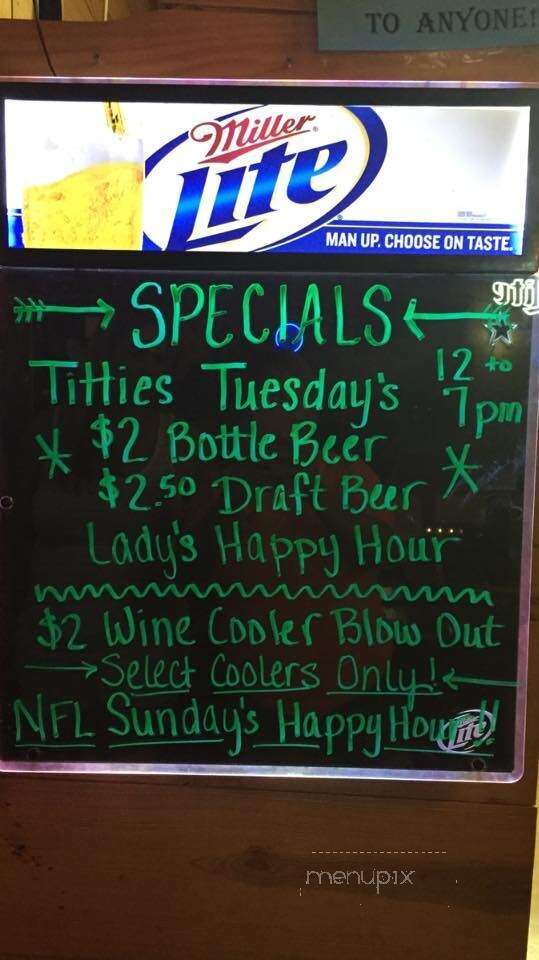 TO ANYONE!
Miller
Lite
MAN UP. CHOOSE ON TASTE.
SPECIALS
Titties Tuesday's 12 to 7pm
$2 Bottle Beer
$2.50 Draft Beer
Lady's Happy Hour
$2 Wine Cooler Blow Out
Select Coolers Only!
NFL Sunday's Happy Hour!!
Lite
menupix